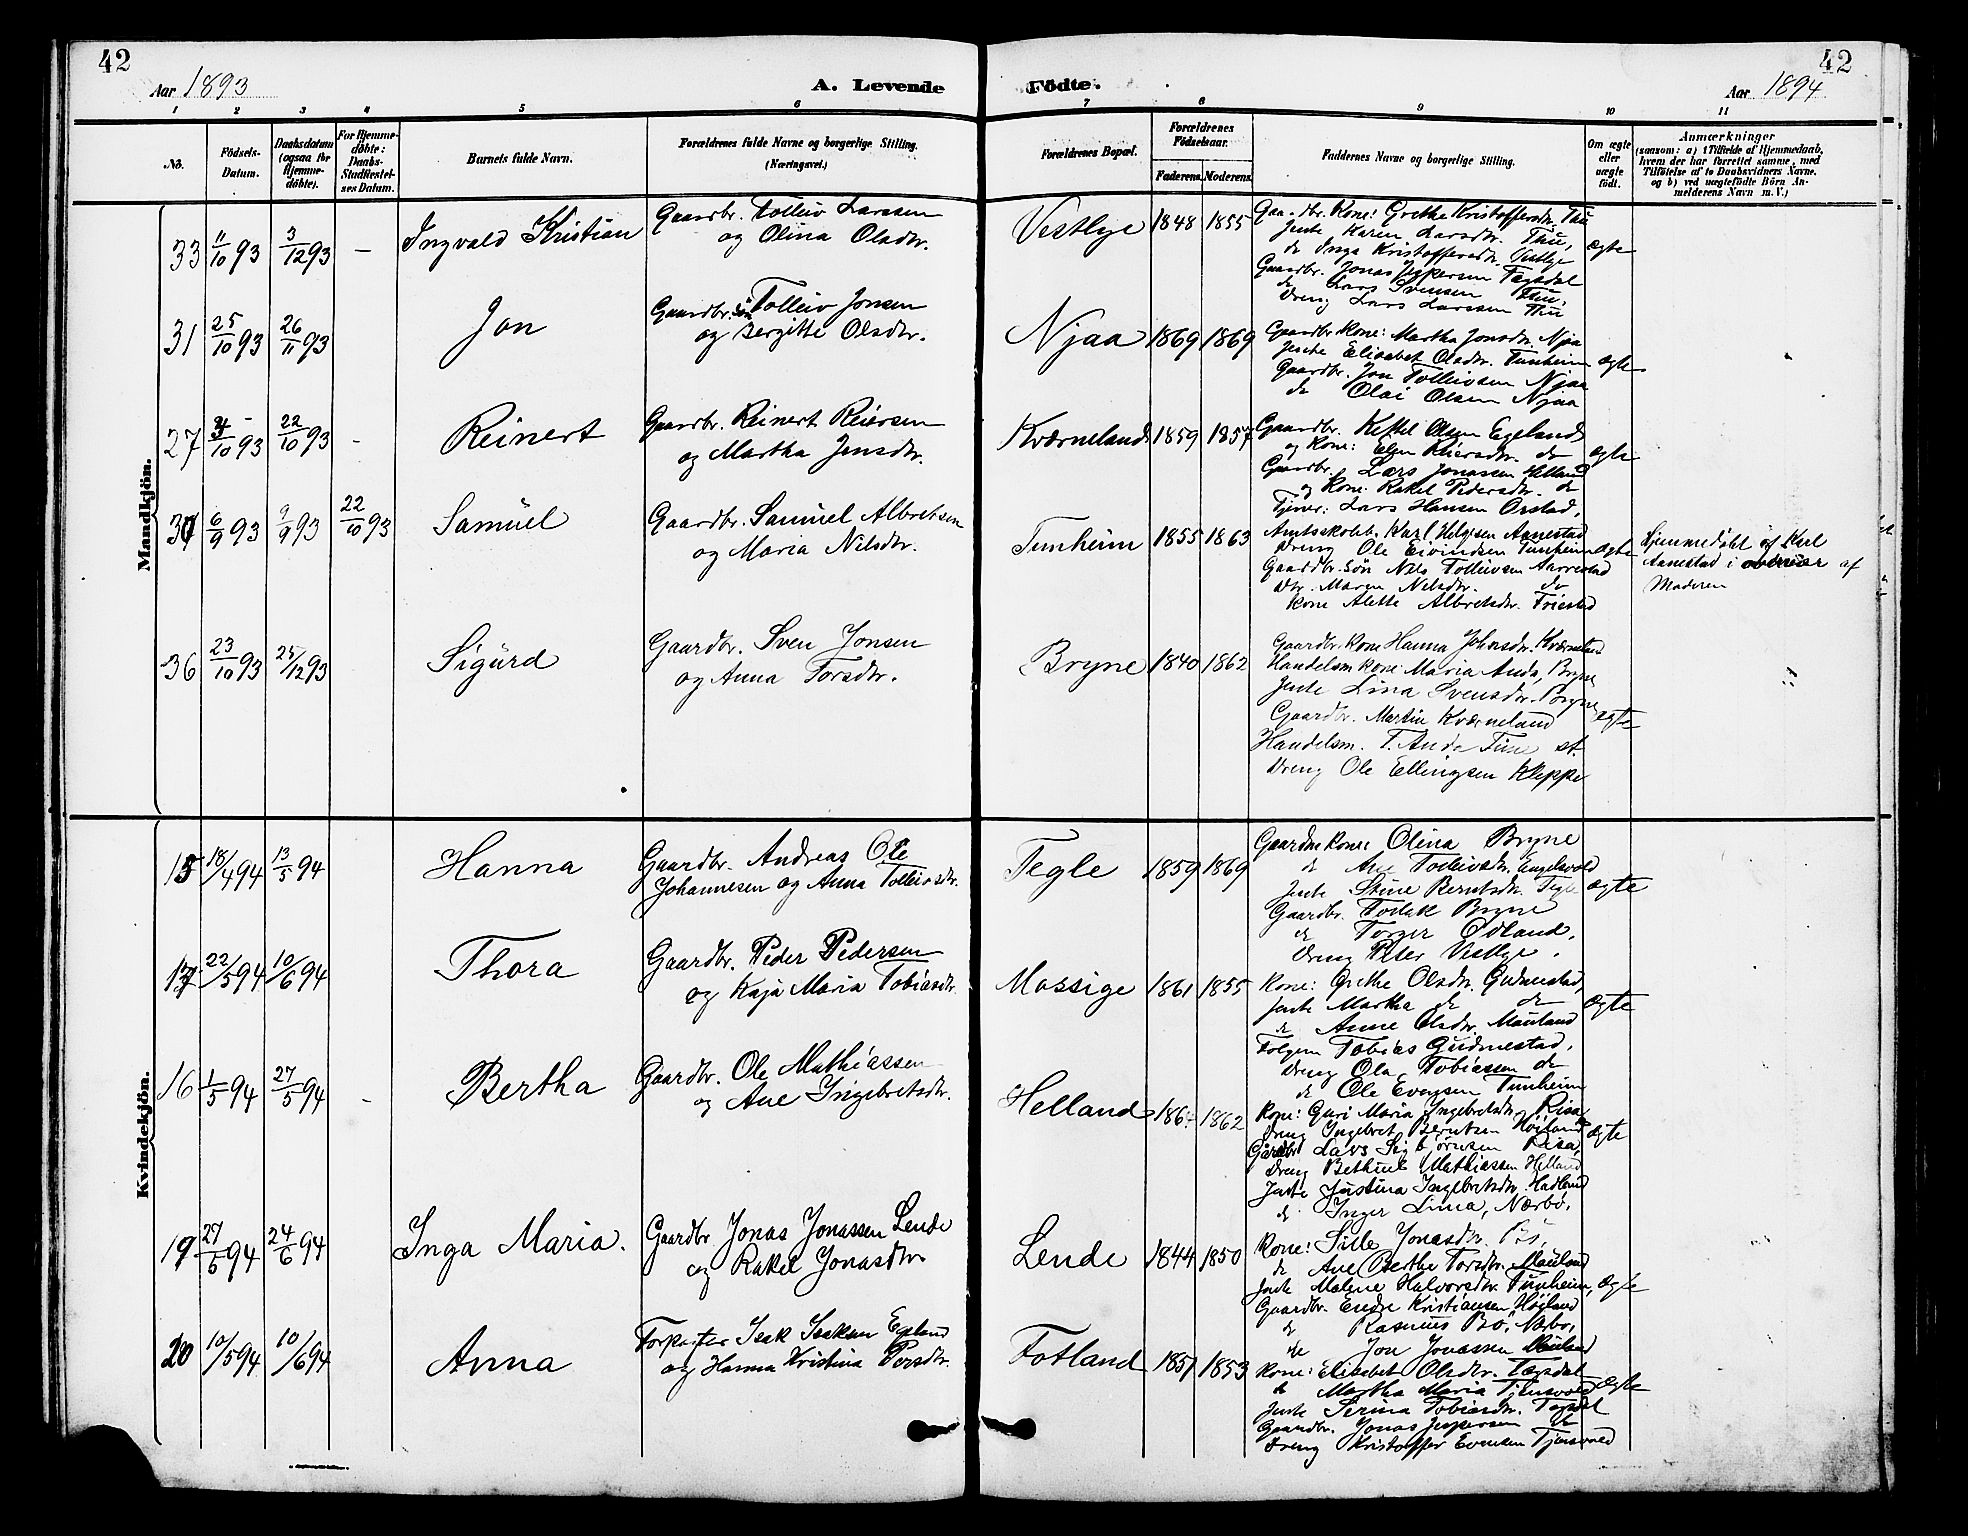 42
42
Aar 1893
A. Levende
Födte.
Aar 1894
1 2 3 4 5 6 7 8 9 10 11
No.
Födsels-Datum.
Daabsdatum (ogsaa for Hjemmedöbte).
For Hjemmedöbte: Daabs-Stadfæstelses Datum.
Barnets fulde Navn.
Forældrenes fulde Navne og borgerlige Stilling. (Næringsvei.)
Forældrenes Bopæl.
Forældrenes Födselsaar.
Faderens.
Moderens.
Faddernes Navne og borgerlige Stilling.
Om ægte eller uægte födt.
Anmærkninger
(saasom: a) i Tilfælde af Hjemmedaab, hvem der har forrettet samme, med Tilföielse af to Daabsvidners Navne. og b) ved uægtefödte Börn Anmelderens Navn m. V.)
Mandkjön.
33 11/10 93 3/12 93 – Ingvald Kristian
Gaardbr. Tolleiv Larssen
og Olina Olsdtr.
Vestlye 1848 1855
Kone: Grethe Kristoffersdtr. Thu
Jente Karen Larsdtr. Thu,
do Inga Kristoffersdtr. Vestlye
Gaardbr. Jonas Jespersen Tegsdal
do Lars Svensen Thu.
Dreng Lars Larssen Thu
ægte
31 25/10 93 26/11 93 Jon
Gaardbr. Tolleiv Jonsen
og Bergitte Olsdtr.
Njaa 1869 1869
Gaardbr Kone: Martha Jonsdtr. Njaa
Jente Elisabet Olsdtr. Tunheim
Gaardbr. Jon Tolleivsen Njaa
do Olai Olsen Njaa
ægte
27 /10 93 22/10 93 – Reinert
Gaardbr. Reinert Reiersen
og Martha Jensdtr.
Kværneland 1859 1857
Gaardbr. Kettel Olsen Egeland
og Kone: Elen Reiersdtr. do
Gaardbr. Lars Jonassen Helland
og Kone Rakel Pedersdtr. do
Tjener: Lars Hansen Orstad.
ægte
6/9 93 9/9 93 22/10 93 Samuel
Gaardbr. Samuel Albretsen
og Maria Nilsdtr.
Tunheim 1855 1863
Amtsskoleb. Karl Helgesen Aanestad
Dreng Ole Eivindsen Tunheim
Gaardbr. Sön Nils Tolleivsen Aarrestad
Dtr. Maren Nilsdtr. do
Kone Alette Albretsdtr. Friestad
ægte
Hjemmedöbt af Karl
Aanestad i overvær af
Moderen
36 23/10 93 25/12 93 Sigurd
Gaardbr. Sven Jonsen
og Anna Torsdtr.
Bryne 1840 1862
Gaardbr. Kone Hanna Johnsdr. Kværneland
Handelsm. Kone: Maria Anda, Bryne
Jente Lina Svensdtr. Bryne
Gaardbr. Martin Kværneland
Handelsm. T. Anda Time st.
Dreng Ole Ellingsen Kleppe
ægte
Kvindekjön.
15 18/4 94 13/5 94 Hanna
Gaardbr. Andreas Ole
Johannesen og Anna Tolleivsdtr.
Tegle 1859 1869
Gaardm Kone: Olina Bryne
do Ane Tolleivsdtr. Engelsvold
Jente Stine Berntsdtr. Tegle
Gaardbr. Torlak Bryne
do Torger Ödland.
Dreng Peter Vestlye.
ægte
22/5 94 10/6 94 Thora
Gaardbr. Peder Pedersen
og Kaja Maria Tobiasdtr.
Mossige 1861 1855
Kone: Grethe Olsdtr. Gudmestad,
Jente Martha do do
do Anne Olsdtr. Mauland
Folgem Tobias Gudmestad.
Dreng Ola Tobiassen do
do Ole Evensen Tunheim
ægte
16 1/5 94 27/5 94 – Bertha
Gaardbr. Ole Mathiassen
og Ane Ingebretsdtr.
Helland 186 1862
Kone: Guri Maria Ingebretsdtr. Risa
Dreng Ingebret Berntsen Höiland
Gardbr Lars Sigbjörnsen Risa,
Dreng Bethuel Mathiassen Helland
Jente Justina Ingebretsdtr. Hadland
do Inger Lima, Nærbö.
ægte
19 27/5 94 24/6 94 Inga Maria.
Gaardbr Jonas Jonassen Lende
og Rakel Jonasdtr.
Lende 1844 1850
Kone: Sille Jonasdtr. Bö,
do Ane Berthe Torsdtr. Mauland
Jente Malene Halvorsdtr. Tunheim,
Gaardbr. Endre Kristiansen Högland
do Rasmus Bö, Nærbö,
do Jon Jonassen Mauland
ægte
20 10/5 94 10/6 94 Anna
Forpagter Isak Isaksen Egeland
og Hanna Kristina Persdtr.
Fotland 1851 1853
Kone: Elisabet Olsdtr. Tægsdal
do Martha Maria Tjensvold
Jente Serina Tobiasdtr. Tegsdal
Gaardbr. Jonas Jespersen do
Dreng Kristoffer Evensen Tjensvold
ægte